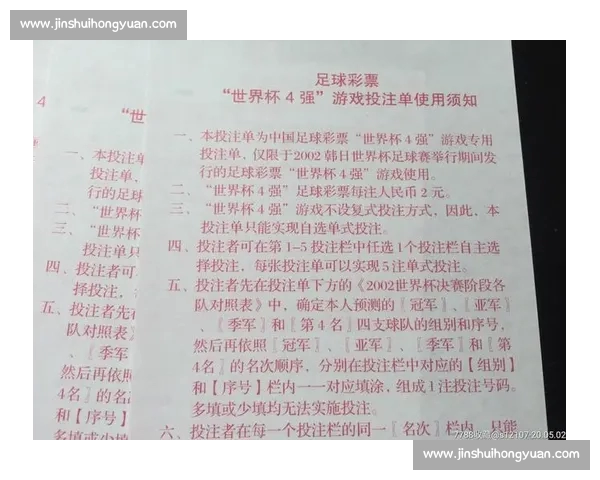 www.jinshuihongyuan.com
足球彩票
“世界杯 4 强”游戏投注单使用须知
一、本投注单为中国足球彩票“世界杯 4 强”游戏专用
投注单，仅限于2002 韩日世界杯足球赛举行期间发
行的足球彩票“世界杯 4 强”游戏使用。
二、“世界杯 4 强”足球彩票每注人民币 2 元。
三、“世界杯 4 强”游戏不设复式投注方式，因此，本
投注单只能实现自选单式投注。
四、投注者可在第 1-5 投注栏中任选 1个投注栏自主选
择投注，每张投注单可以实现 5 注单式投注。
五、投注者先在投注单下方的《2002世界杯决赛阶段各
队对照表》中，确定本人预测的〖冠军〗、〖亚军〗
、〖季军〗和〖第 4 名〗四支球队的组别和序号，
然后再依照〖冠军〗、〖亚军〗、〖季军〗和〖第
4名〗的名次顺序，分别在投注栏中对应的【组别】
和【序号】栏内一一对应填涂，组成 1 注投注号码。
多填或少填均无法实施投注。
六、投注者在每一个投注栏的同一〖名次〗栏内，只能
4
“世
一、本投注单
投注单，
行的足球
二、“世界杯
三、“世界杯
投注单只
四、投注者可
择投注，
五、投注者先在
队对照表》
、〖季军
然后再依照
4名〗的名
和【序号】
多填或少填
7788收藏@s12107-20.05.02
www.jinshuihongyuan.com